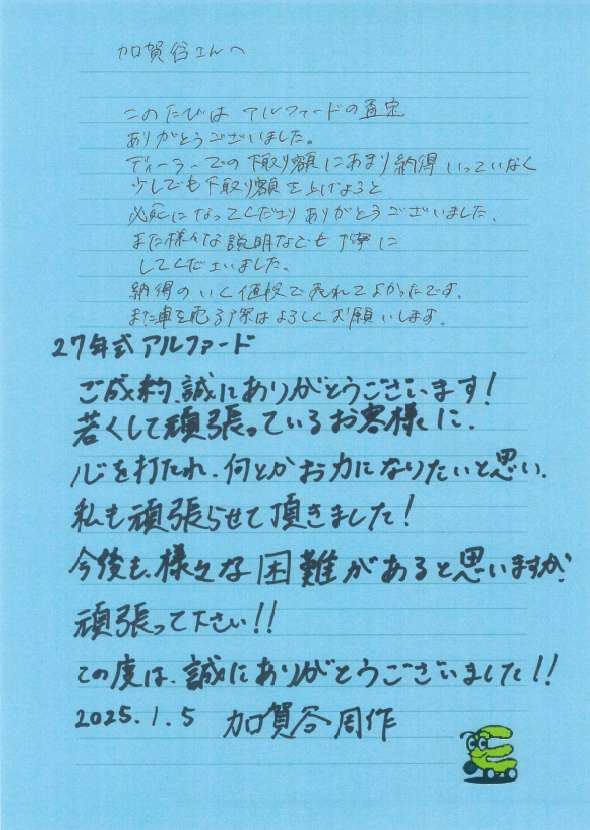 加賀谷さんへ
このたびは アルファードの査定
ありがとうございました。
ディーラーでの下取り額にあまり納得いっていなく
少しでも下取り額を上げようと
必死になってくださりありがとうございました。
また様々な説明なども丁寧に
してくださいました。
納得のいく値段で売れてよかったです。
また車を売る際はよろしくお願いします。
27年式アルファード
ご成約、誠にありがとうございます!
若くして頑張っているお客様に、
心を打たれ、何とかお力になりたいと思い、
私も頑張らせて頂きました!
今後も、様々な困難があると思いますが、
頑張って下さい!!
この度は、誠にありがとうございました!!
2025.1.5 加賀谷周作